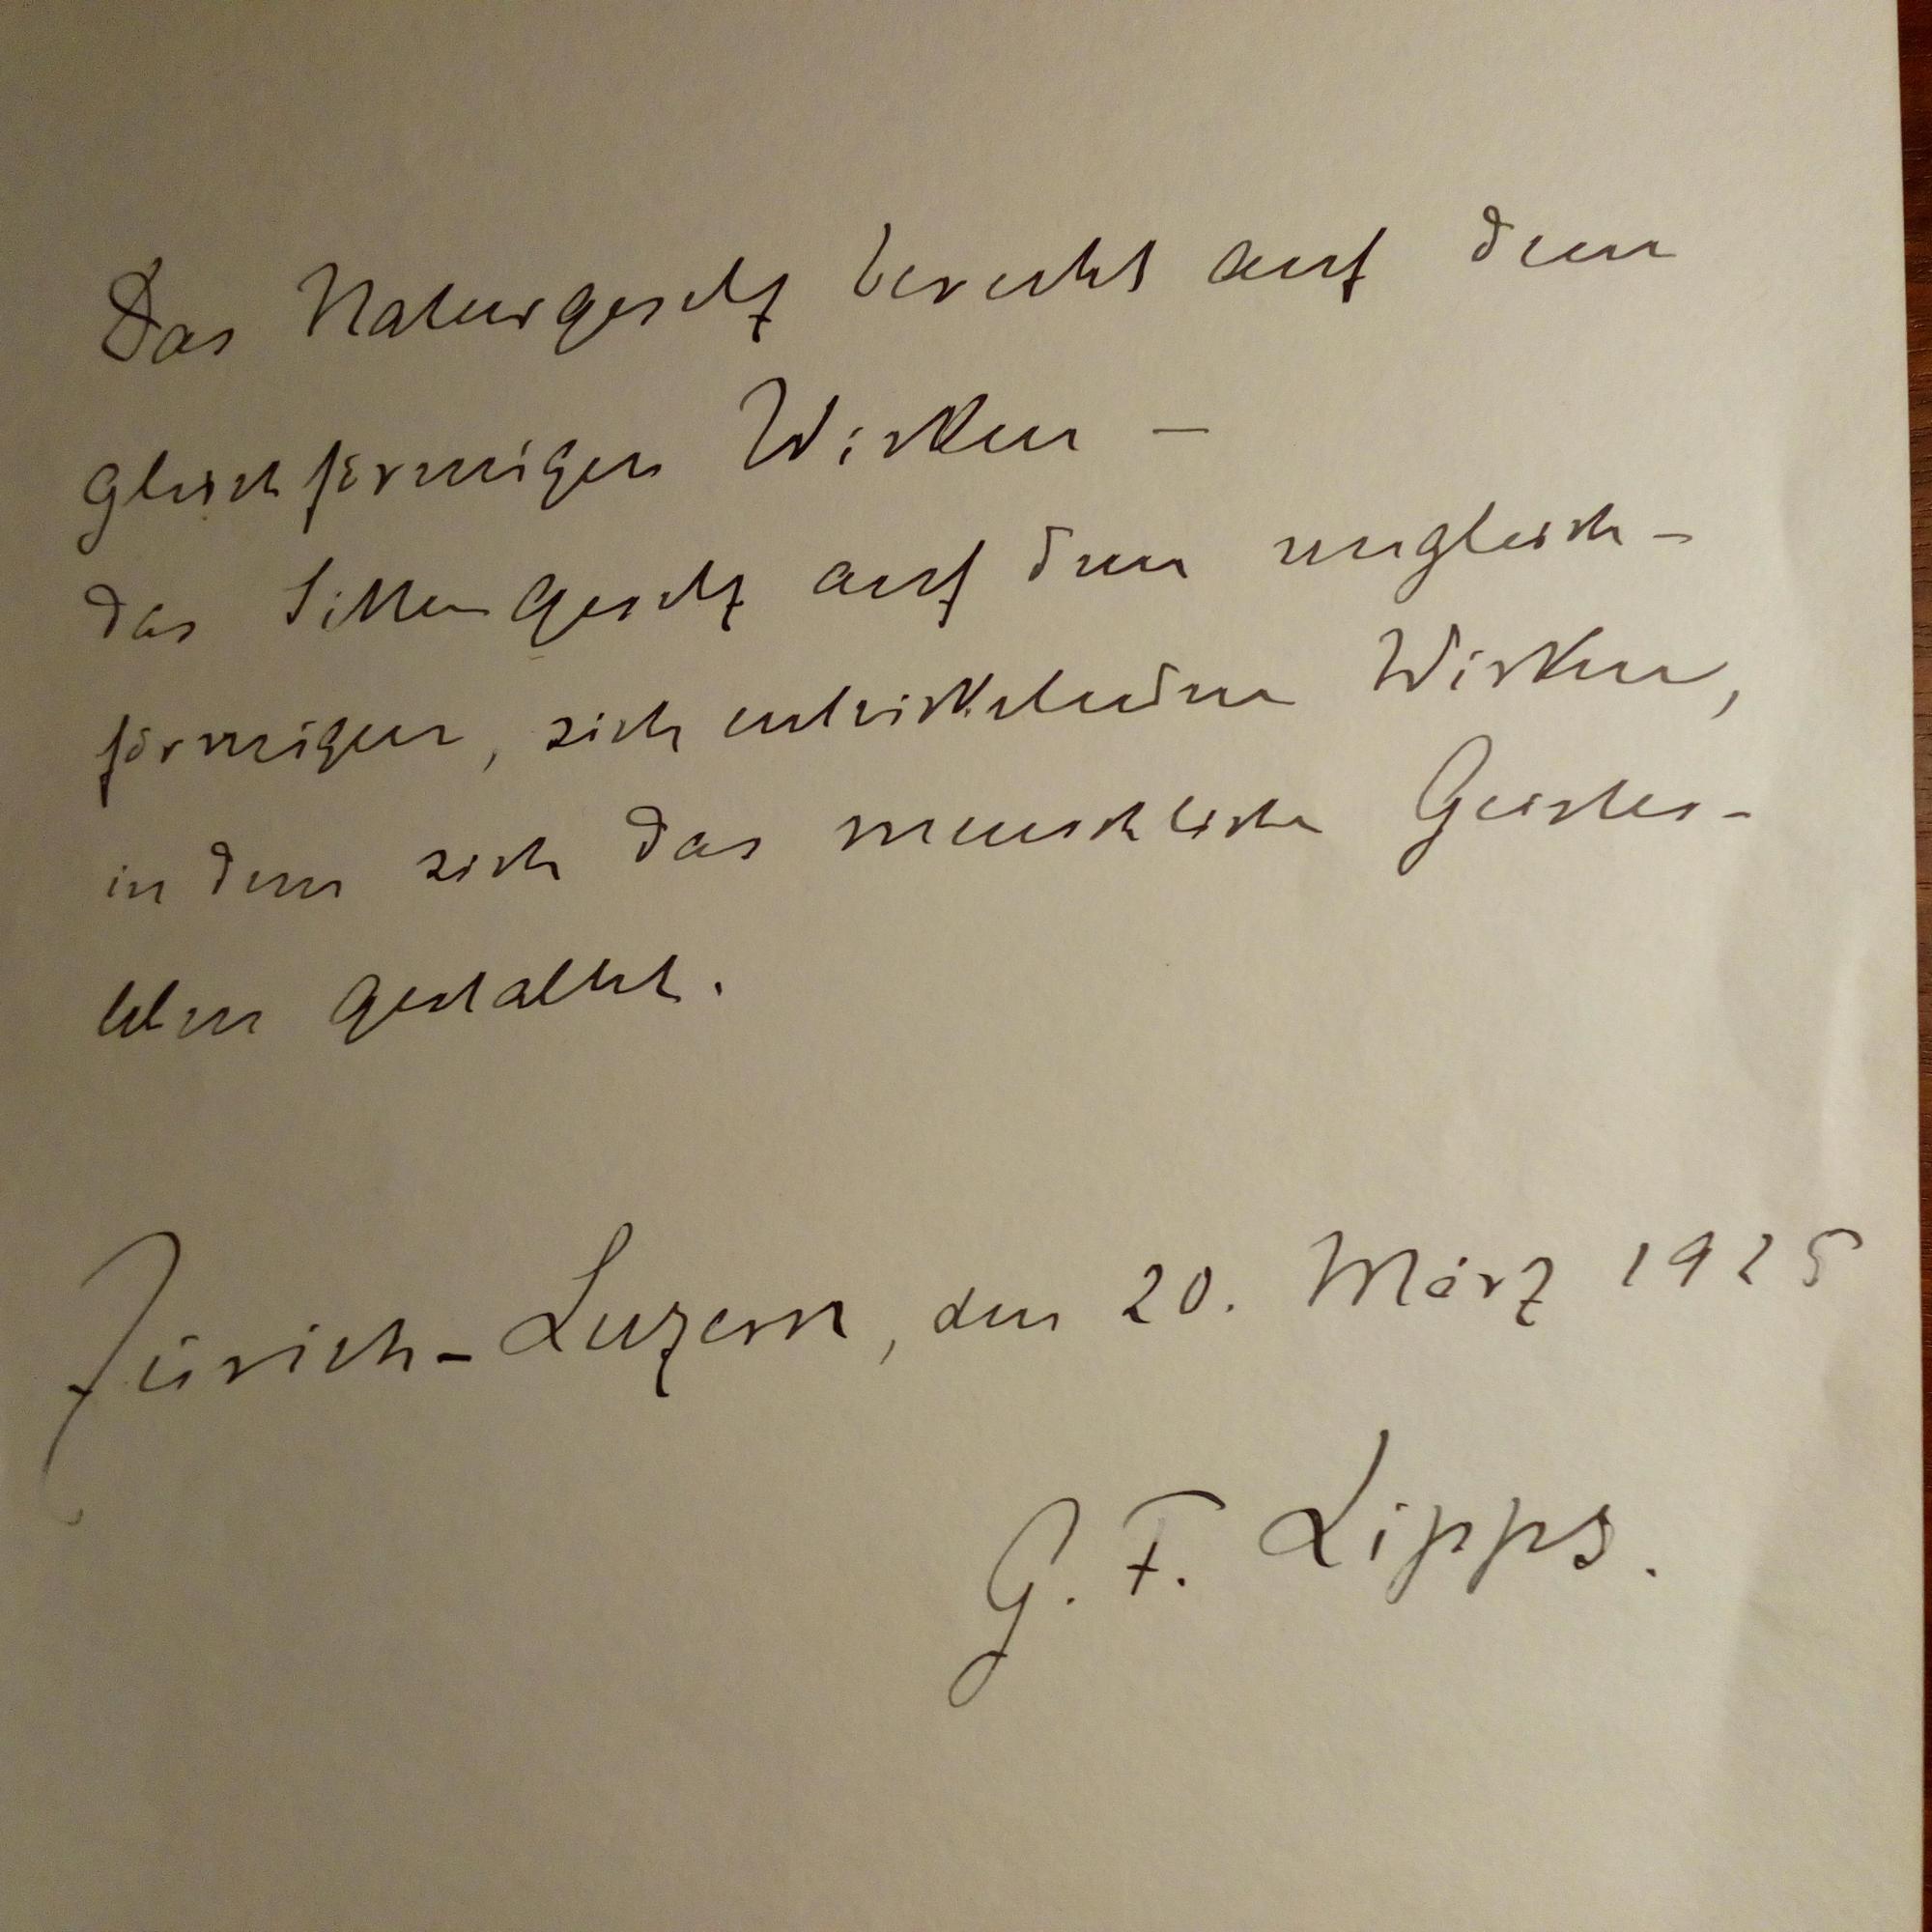 Das Naturgesetz beruht auf dem
gleichförmigen Wirken –
das Sittengesetz auf dem ungleich-
förmigen, sich entwickelnden Wirken,
in dem sich das menschliche Geistes-
leben gestaltet.
Zürich-Luzern, den 20. März 1925
G. F. Lipps.